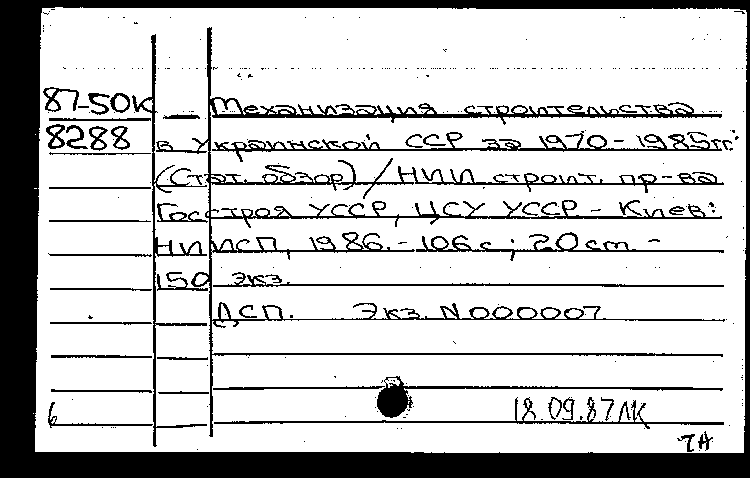 87-50К — Механизация строительства
8288 в Украинской ССР за 1970-1985гг:
(Стат. обзор) / НИИ строит. пр-ва
Госстроя УССР, ЦСУ УССР - Киев:
НИИСП, 1986.-106с; 20см. -
150 экз.
ДСП. Экз. N000007
6 18.09.87ЛК
7А